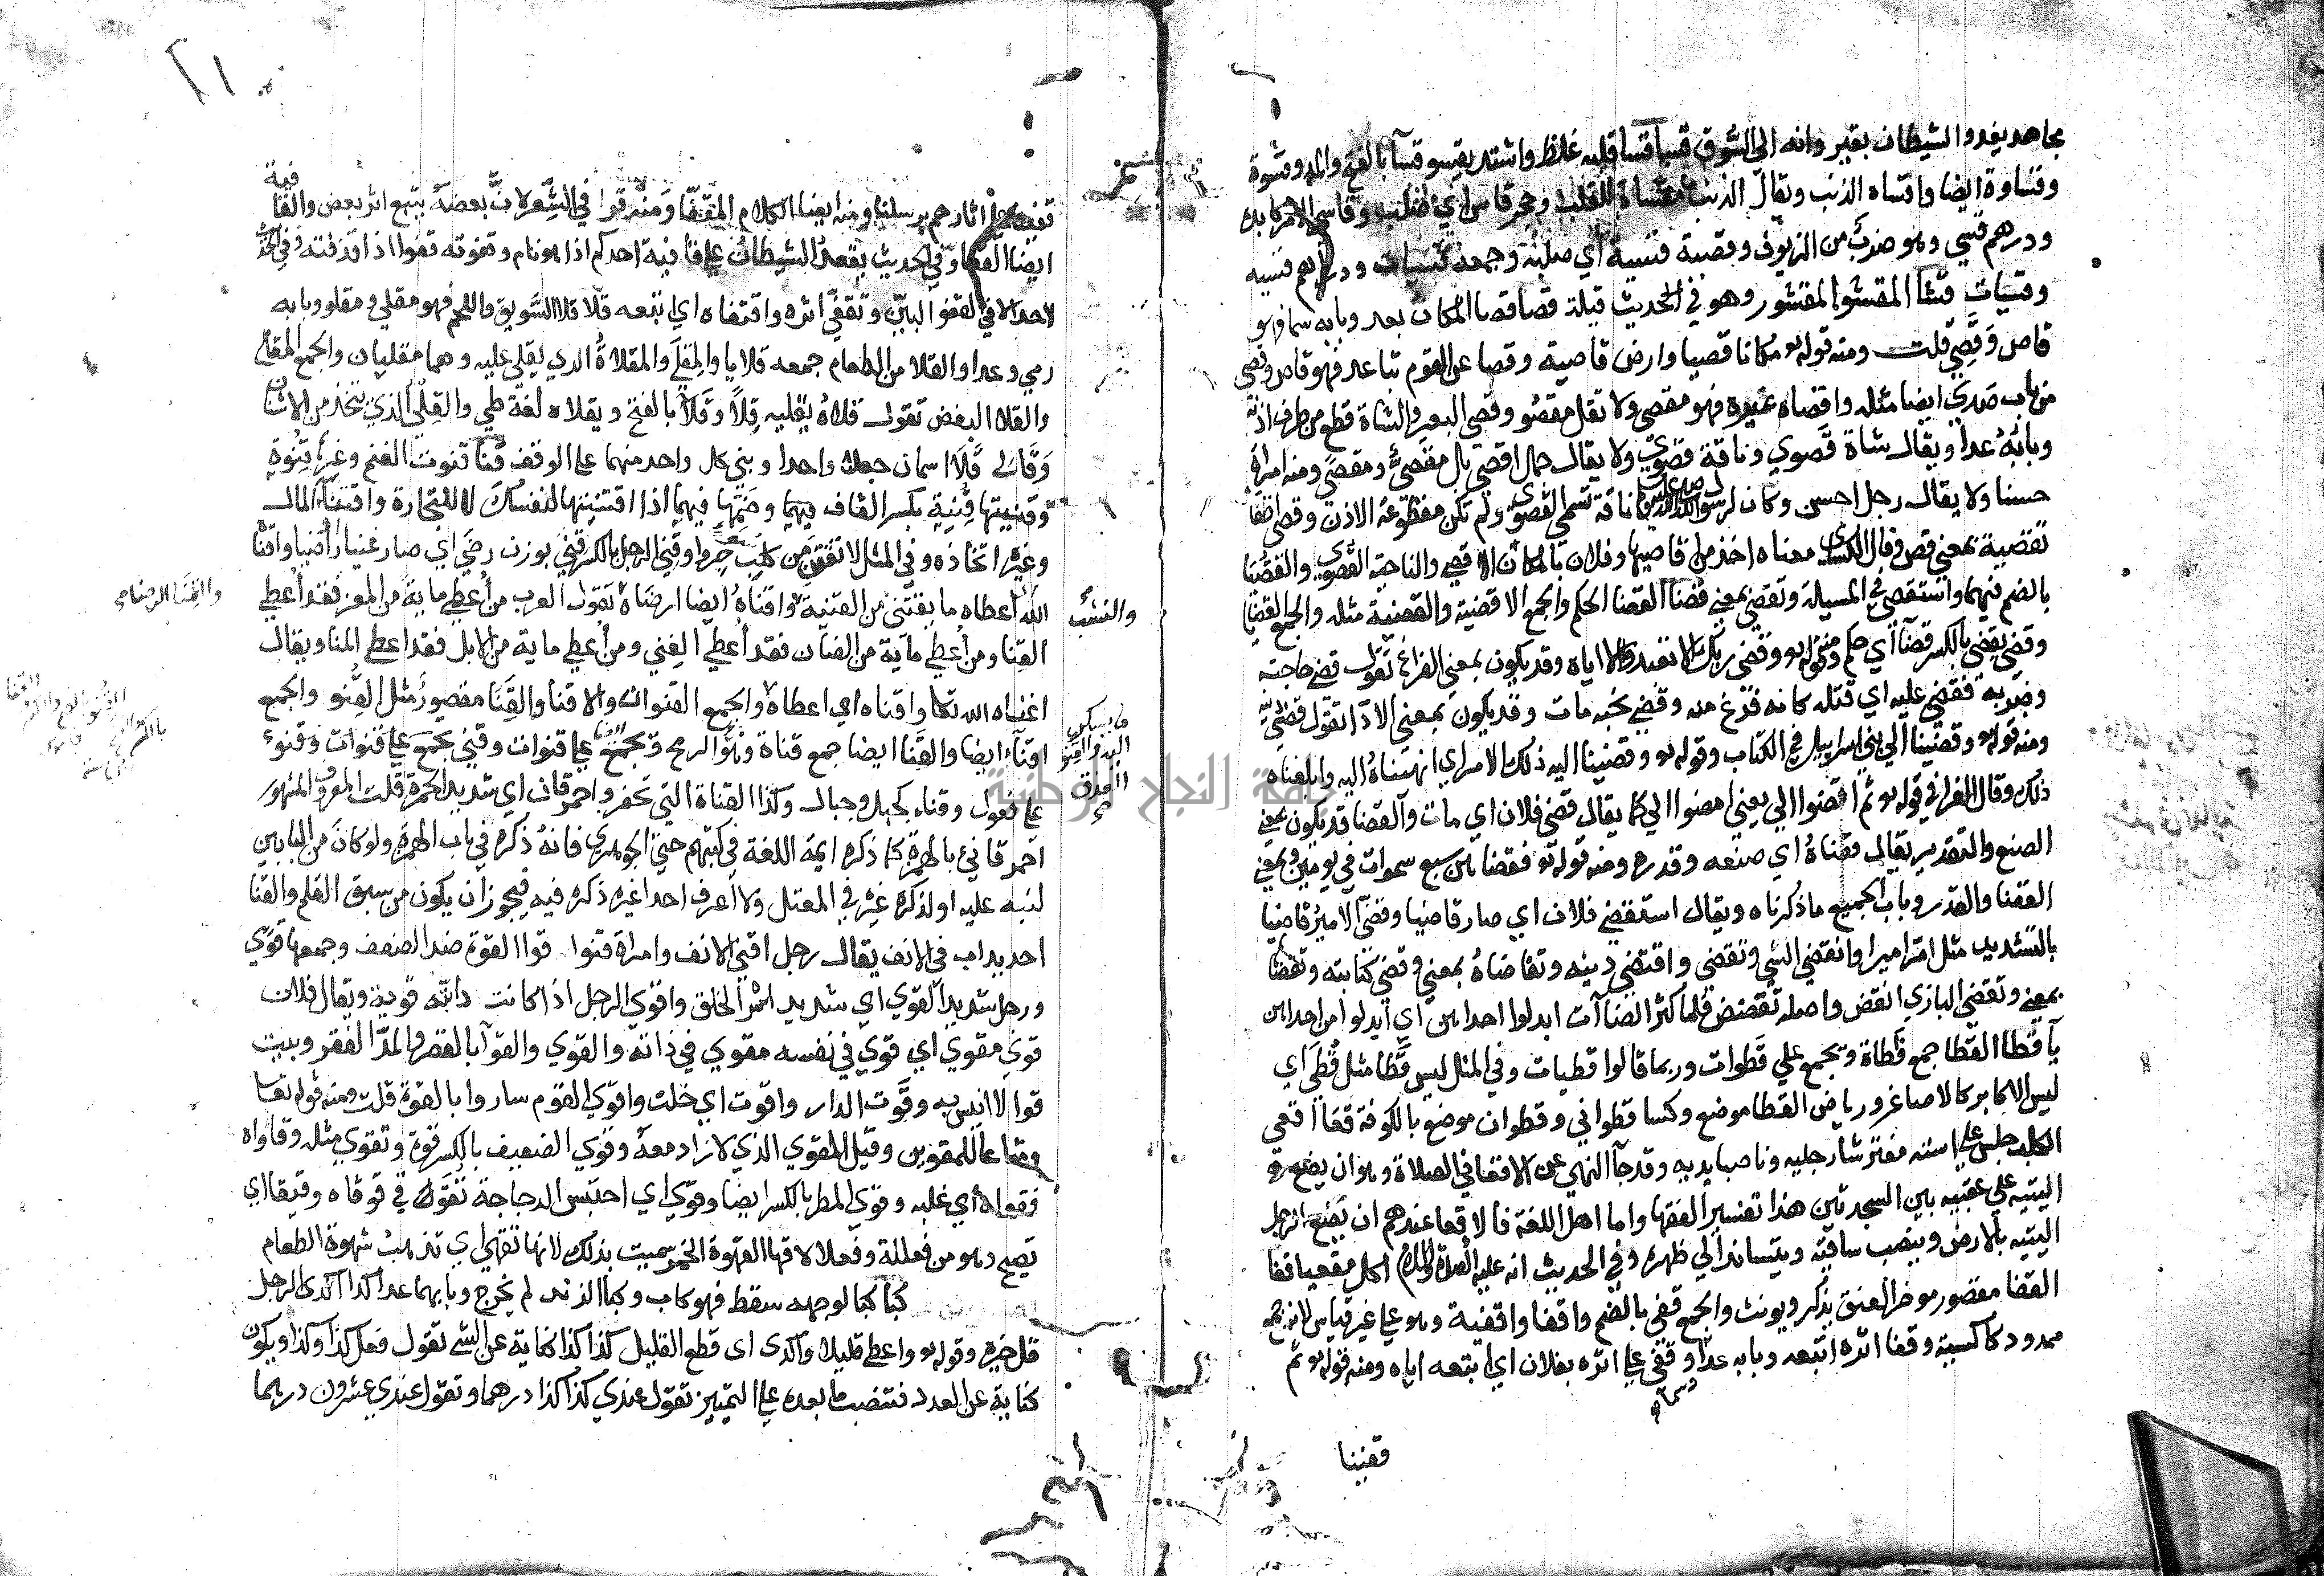 مجاهد يغدوا الشيطان بقيروانه الى السوق قسا قسا قلبه غلظ واشتد يقسو قسآ بالفتح والمد وقسوة
وقساوة ايضا واقساه الذنب ويقال الذنب مقساة للقلب وحجر قاس اي صلب وقاسى الامر كابده
ودرهم قسي وهو ضرب من الزيوف وفضة قسية اي صلبة وجمعه قسيات ودراهم قسيه
وقسيات قشا المقشو المقشور وهو في الحديث قيلة قصا قصا المكان بعد وبابه سما فهو
قاص وقصي قلت ومنه قوله تع مكانا قصيا وارض قاصية وقصا عن القوم تباعد فهو قاص وقصي
من باب صدي ايضا مثله واقصاه غيره فهو مقصى ولا تقل مقصو وقصى البعير والشاة قطع من طرف اذنه
وبابه عدا ويقال شاة قصوي وناقة قصوي ولا يقال جمل اقصى بل مقصو ومقصى ومنه امراة
حسنا ولا يقال رجل احسن وكان لرسول الله ناقة تسمى القصوى ولم تكن مقطوعة الاذن وقصى اظفا
تقصية بمعنى قص وقال الكسائى معناه اخذ من اقاصيها وفلان بالمكان الاقصى والناحية القصوى والقصيا
بالضم فيهما واستقصى في المسيلة وتقصى بمعنى قضا القضا الحكم والجمع الاقضية والقضية مثله والجمع القضايا
وقضى يقضي بالكسر قضآ اي حكم ومنه قوله تع وقضى ربك الا تعبدوا الا اياه وقد يكون بمعنى الفراغ تقول قضى حاجته
وضربه فقضى عليه اي قتله كانه فرغ منه وقضى نحبه مات وقد يكون بمعنى الادآ تقول قضى دينه
ومنه قوله تع وقضينا الى بني اسراييل في الكتاب وقوله تع وقضينا اليه ذلك الامر اي انهيناه اليه وابلغناه
ذلك وقال الفرا في قوله تع ثم اقضوا الي يعني امضوا الي كما يقال قضى فلان اي مات والقضا قد يكون بمعنى
الصنع والتقدير يقال قضاه اي صنعه وقدره ومنه قوله تع فقضاهن سبع سموات في يومين وبمعنى
القضا والقدر وباب الجميع ما ذكرناه ويقال استقضي فلان اي صار قاضيا وقضى الامير قاضيا
بالتشديد مثل امر اميرا وانقضى الشي وتقضى واقتضى دينه وتقاضاه بمعنى وقضى كتابته وتقضا
بمعنى وتقضى البازي انقض واصله تقضض فلما كثر الضاآت ابدلوا احداهن اي ابدلوا من احداهن
يآ قطا القطا جمع قطاة وتجمع علي قطوات وربما قالوا قطيات وفي المثل ليس قطا مثل قطى اي
ليس الاكابر كالاصاغر ورياض القطا موضع وكسا قطواني وقطوان موضع بالكوفة قعا اقعى
الكلب جلس على استه مفترشا رجليه وناصبا يديه وقد جآ النهي عن الاقعا في الصلاة وهو ان يضع
اليتيه علي عقبيه بين السجدتين هذا تفسير الفقها واما اهل اللغة فالاقعا عندهم ان يضع الرجل
اليتيه بالارض وينصب ساقيه ويتساند الي ظهره وفي الحديث انه عليه الصلاة والسلام اكل مقعيا قفا
القفا مقصور موخر العنق يذكر ويونث والجمع قفي بالضم واقفا واقفية وهو على غير قياس لانه جمع
ممدود كاكسية وقفا اثره اتبعه وبابه عدا وسما وقفى على اثره بفلان اي اتبعه اياه ومنه قوله تع ثم
قفينا
قفينا على اثارهم برسلنا ومنه ايضا الكلام المقفا ومنه قوافي الشعر لان بعضه يتبع اثر بعض والقافية
ايضا القفا وفي الحديث يقعد الشيطان على قافية احدكم اذا هو نام وقفوته قفوا اذا قذفته وفي الحديث
لا حد الا في القفو البين وتقفى اثره واقتفاه اي اتبعه قلا قلا السويق واللحم فهو مقلي ومقلو وبابه
رمى وعدا والقلا من الطعام جمعه قلايا والمقلى والمقلاة الذي يقلى عليه وهما مقليان والجمع المقالي
والقلا البغض تقول قلاه يقليه قلا وقلآ بالفتح ويقلاه لغة طي والقلي الذي يتخذ من الاشنان
وقالي قلا اسمان جعلا واحدا وبني كل واحد منهما على الوقف قنا قنوت الغنم وغيرها قنوة
وقنيتها قنية بكسر القاف فيهما وضمها فيهما اذا اقتنيتها لنفسك لا للتجارة واقتناء المال
وغيره اتخاذه وفي المثل لا تقتن من كلب جروا وقني الرجل بالكسر قنى بوزن رضى اي صار غنيا راضيا واقناه
الله اعطاه ما يقتنى من القنية والنشب واقناه ايضا ارضاه تقول العرب من اعطي ماية من المعز فقد اعطي
والقنا الرضا
القنا ومن اعطي ماية من الضان فقد اعطي الغني ومن اعطي ماية من الابل فقد اعطي المنا ويقال
اغناه الله تعا واقناه اي اعطاه ما يسكن اليه والقنو العذق والجمع القنوان والاقنا والقنا مقصور مثل القنو والجمع
اقناء ايضا والقنا ايضا جمع قناة وهو الرمح وتجمع على قنوات وقني تجمع على قنوات وقنو
على فعول وقناء كجبل وجبال وكذا القناة التي تحفر واحمر قان اي شديد الحمرة قلت المعروف المشهور
احمر قانئ بالهمزة كما ذكره ايمة اللغة في كتبهم حتى الجوهري فانه ذكره في باب الهمزة ولو كان من البابين
لنبه عليه او لذكره غيره في المعتل ولا اعرف احدا غيره ذكره فيه فيجوز ان يكون من سبق القلم والقنا
احديداب في الانف يقال رجل اقنى الانف وامراة قنوا قوا القوة ضد الضعف وجمعها قوى
ورجل شديد القوي اي شديد اسر الخلق واقوى الرجل اذا كانت دابته قوية ويقال فلان
قوي مقوي اي قوي في نفسه مقوي في دابته والقوي والقوآ بالقصر والمد القفر وبيت
قوا لا انيس به وقوت الدار واقوت اي خلت واقوى القوم ساروا بالقوة قلت ومنه قوله تعا
ومتاعا للمقوين وقيل المقوي الذي لا زاد معه وقوي الضعيف بالكسر قوة وتقوى مثله وقاواه
فقواه اي غلبه وقوي المطر بالكسر ايضا وقوى اي احتبس الدجاجة تقول في قوقاه وقيقا اي
تصيح وهو من فعللة وفعلالا قها القهوة الخمر سميت بذلك لانها تقهي اي تذهب شهوة الطعام
كبا كبا لوجهه سقط فهو كاب وكبا الزند لم يخرج وبابهما عدا كدا اكدى الرجل
قل خيره وقوله تع واعطى قليلا واكدى اى قطع القليل كذا كذا كناية عن الشي تقول فعل كذا وكذا ويكون
كناية عن العدد فتنصب ما بعده على التمييز تقول عندي كذا كذا درهما وتقول عندي عشرون درهما
جامعة النجاح الوطنية